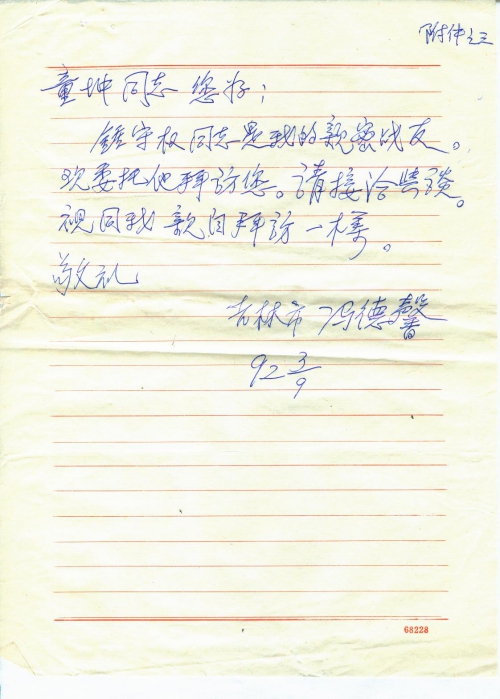 附件之三
童坤同志 您好；
鍾守权同志是我的親密战友。
欢委托他拜訪您。請接洽面談。
視同我親自拜訪一樣。
敬礼
吉林市 冯德馨
92 3/9
68228